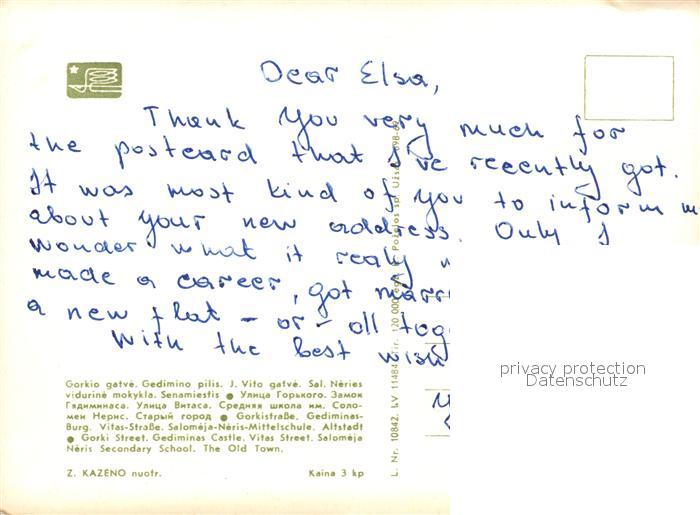 Dear Elsa,
Thank you very much for
the postcard that I've recently got.
It was most kind of you to inform
about your new address. Only I
wonder what it realy
made a career, got marr
a new flat - or - all tog
With the best wish
privacy protection
Datenschutz
Gorkio gatvė. Gedimino pilis. J. Vito gatvė. Sal. Nėries
vidurinė mokykla. Senamiestis ● Улица Горького. Замок
Гядиминаса. Улица Витаса. Средняя школа им. Соло-
меи Нерис. Старый город ● Gorkistraße. Gediminas-
Burg. Vitas-Straße. Salomėja-Nėris-Mittelschule. Altstadt
● Gorki Street. Gediminas Castle. Vitas Street. Salomėja
Nėris Secondary School. The Old Town.
Z. KAZĖNO nuotr.    Kaina 3 kp
L. Nr. 10842. LV 11484. Tir. 120 000 egz. Požėlos sp. Užs.